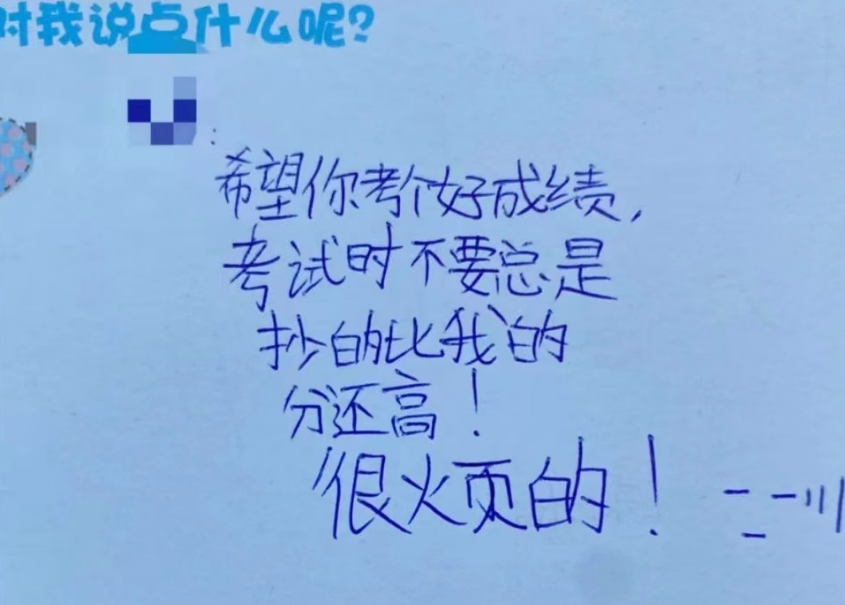 时我说点什么呢?
:
希望你考个好成绩,
考试时不要总是
抄的比我的
分还高!
很烦的!